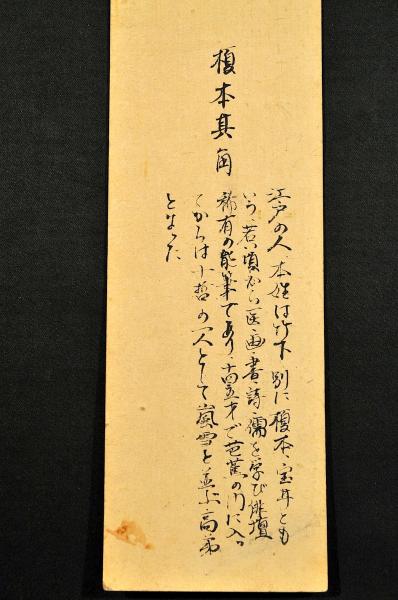 榎本其角
江戸の人、本姓は竹下 別に榎本、宝井とも
いう、若い頃から医・画・書・詩・儒を学び俳壇
稀有の能筆であり、十四五才で芭蕉の門に入っ
てからは十哲の一人として嵐雪と並ぶ高弟
となった